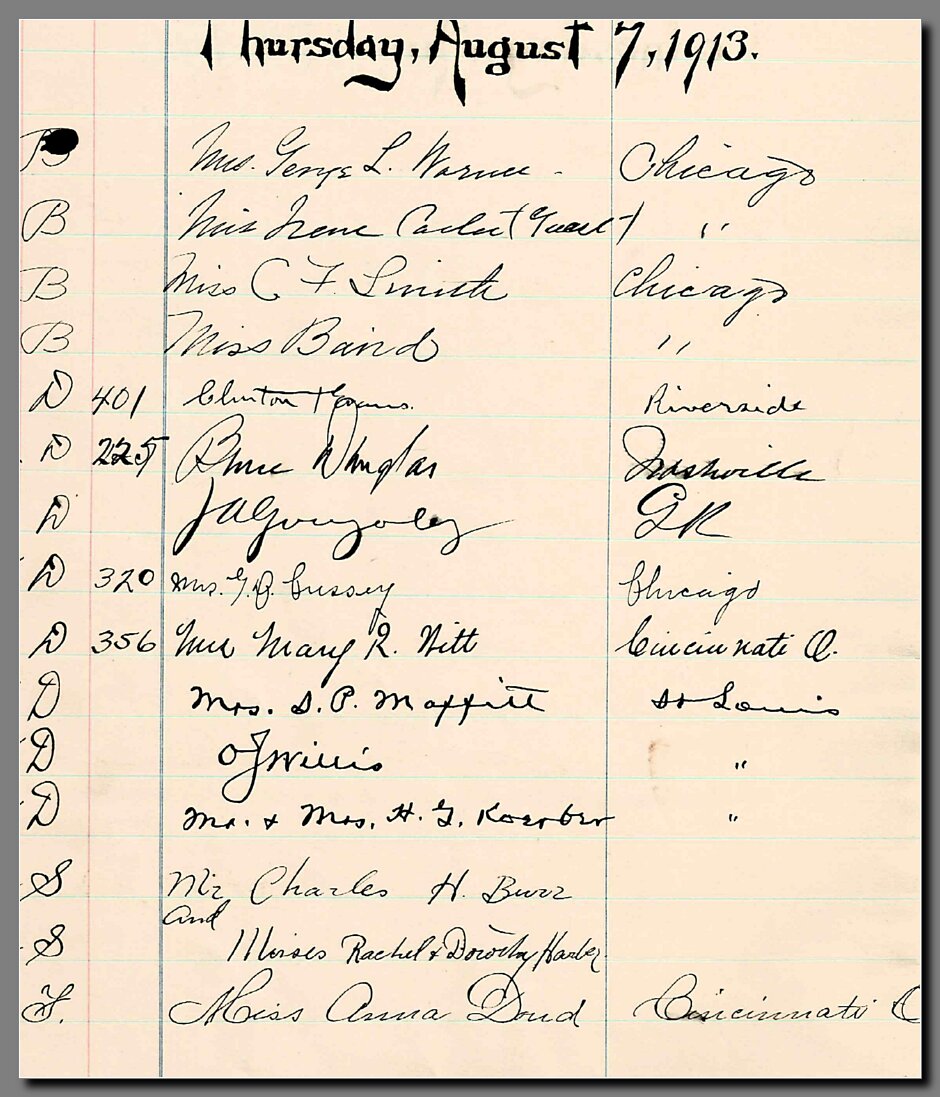 Thursday, August 7, 1913.
B Mrs. George L. Warner - Chicago
B Miss Irene (Guest) "
B Miss C F. Smith Chicago
B Miss Baird "
D 401 Clinton Riverside
D 225 Bruce Douglas Nashville
D J A Gonzalez GR
D 320 Mrs. G. Chicago
D 356 Mrs Mary R. Hitt Cincinnati O.
D Mrs. S. P. Moffitt St Louis
D O J Willis "
D Mr. & Mrs. H. G. Koerber "
S Mr Charles H. Burr
and
S Misses Rachel & Dorothy
F. Miss Anna Doud Cincinnati O